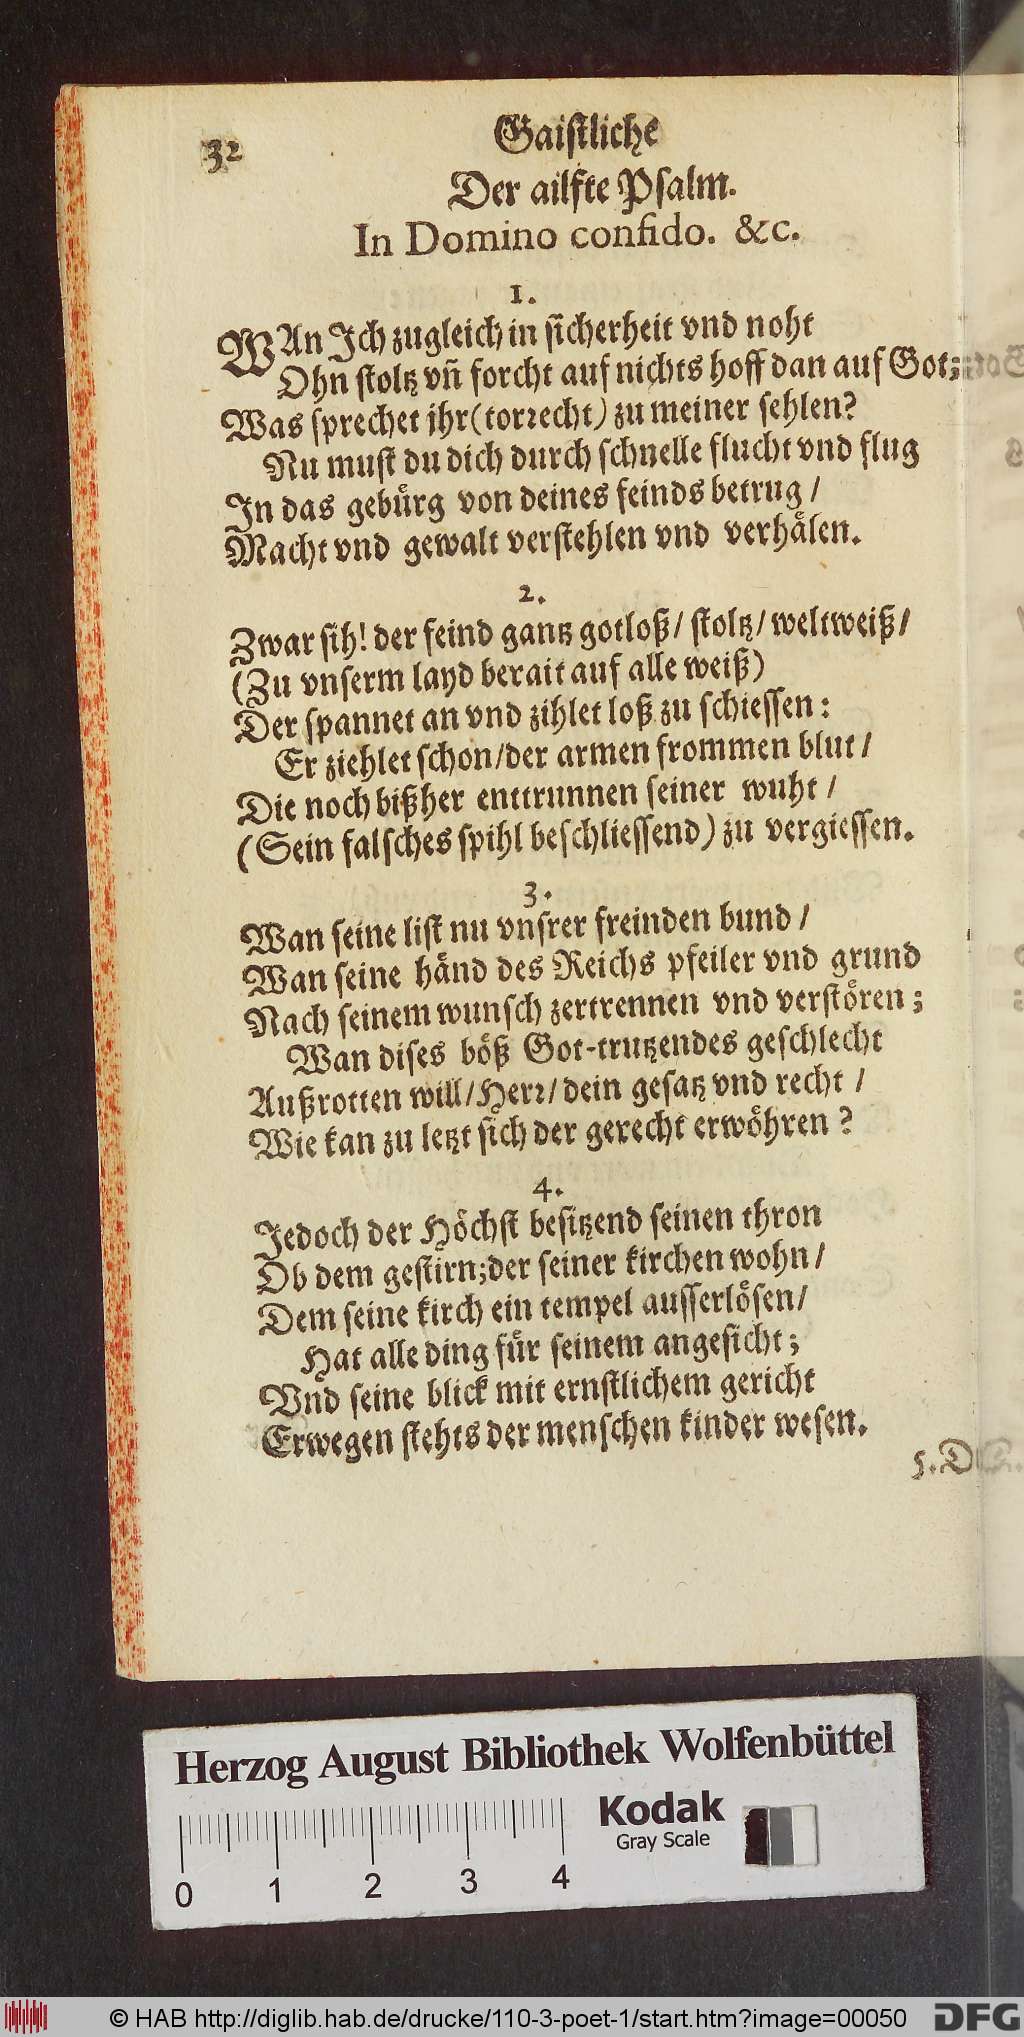 32
Gaistliche
Der ailfte Psalm.
In Domino confido. &c.
1.
WAn Ich zugleich in sicherheit vnd noht
Ohn stoltz vn̄ forcht auf nichts hoff dan auf Got;
Was sprechet ihr (torrecht) zu meiner sehlen?
Nu must du dich durch schnelle flucht vnd flug
In das gebürg von deines feinds betrug /
Macht vnd gewalt verstehlen vnd verhälen.
2.
Zwar sih! der feind gantz gotloß / stoltz / weltweiß /
(Zu vnserm layd berait auf alle weiß)
Der spannet an vnd zihlet loß zu schiessen:
Er ziehlet schon / der armen frommen blut /
Die noch bißher enttrunnen seiner wuht /
(Sein falsches spihl beschliessend) zu vergiessen.
3.
Wan seine list nu vnsrer freinden bund /
Wan seine händ des Reichs pfeiler vnd grund
Nach seinem wunsch zertrennen vnd verstören;
Wan dises böß Got-trutzendes geschlecht
Außrotten will / Herr / dein gesatz vnd recht /
Wie kan zu letzt sich der gerecht erwöhren?
4.
Jedoch der Höchst besitzend seinen thron
Ob dem gestirn; der seiner kirchen wohn /
Dem seine kirch ein tempel ausserlösen /
Hat alle ding für seinem angesicht;
Vnd seine blick mit ernstlichem gericht
Erwegen stehts der menschen kinder wesen.
5. D
Herzog August Bibliothek Wolfenbüttel
Kodak
Gray Scale
0 1 2 3 4
© HAB http://diglib.hab.de/drucke/110-3-poet-1/start.htm?image=00050
DFG